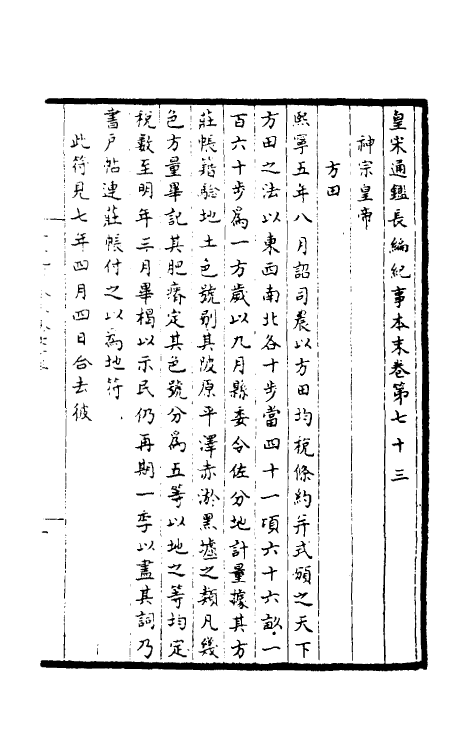 皇宋通鑑長編紀事本末卷第七十三
神宗皇帝
方田
熙寧五年八月詔司農以方田均稅條約并式頒之天下
方田之法以東西南北各十步當四十一項六十六畝一
百六十步爲一方歲以九月縣委令佐分地計量據其方
莊帳籍驗地土色號别其陂原平澤赤淤黑壚之類凡幾
色方量畢記其肥瘠定其色號分爲五等以地之等均定
稅數至明年三月畢揭以示民仍再期一季以盡其詞乃
書户帖連莊帳付之以為地符
此符見七年四月四日合去彼